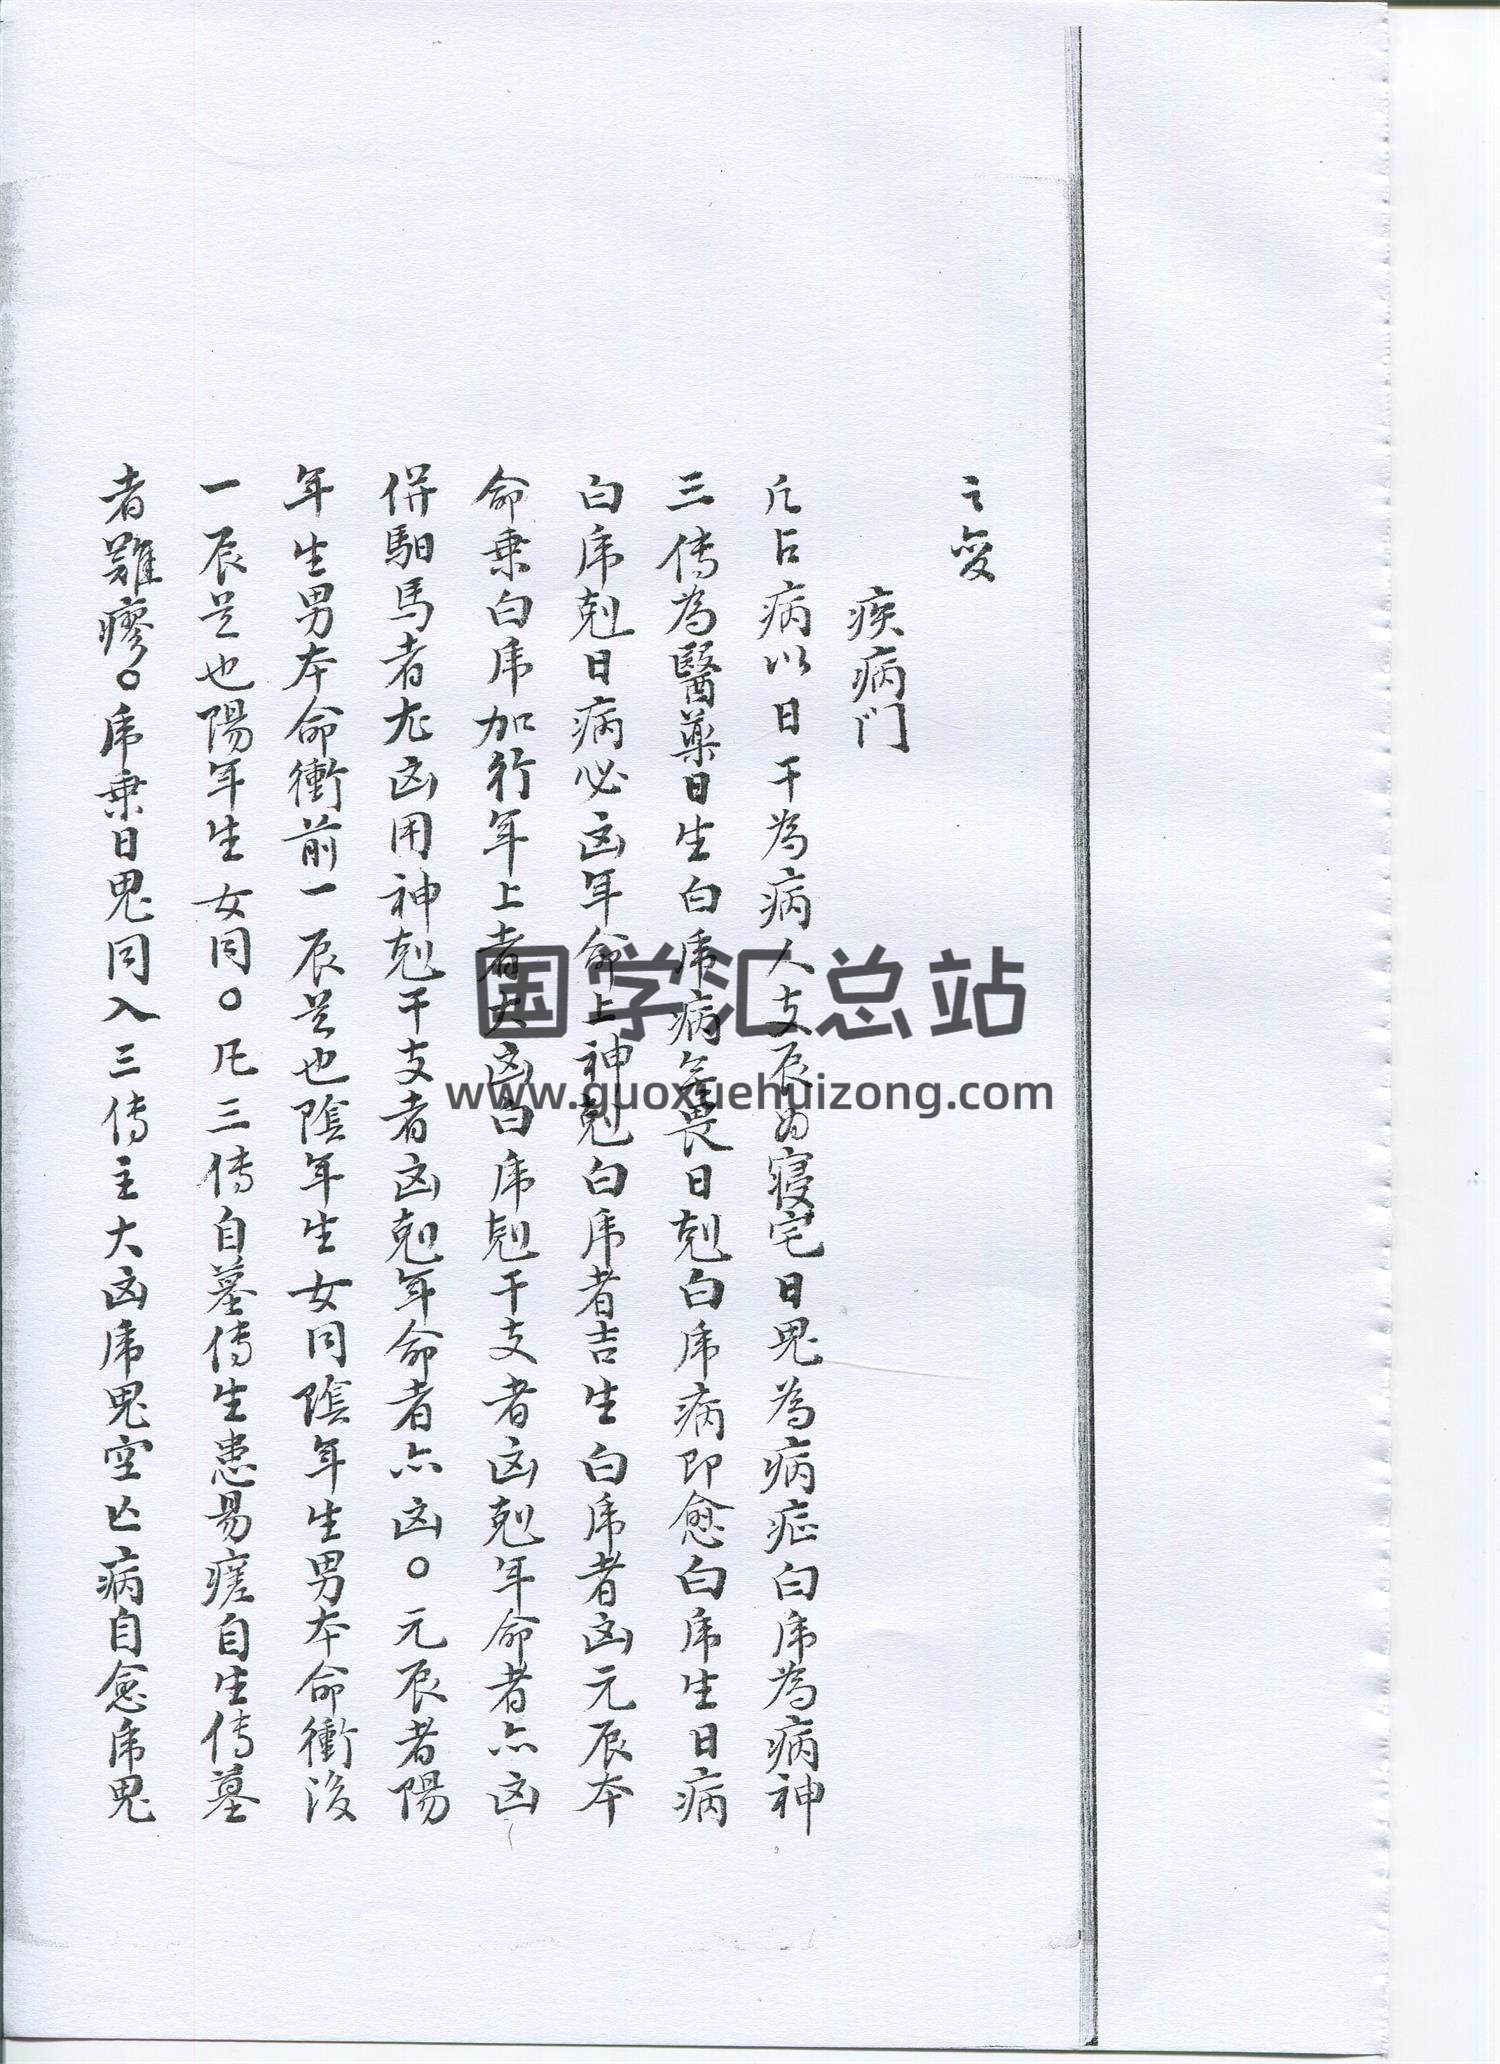 之變
疾病门
凡占病以日干為病人支辰为寢宅日鬼為病症白虎為病神
三传為醫藥日生白虎病無畏日剋白虎病即愈白虎生日病
白虎剋日病必凶年命上神剋白虎者吉生白虎者凶元辰本
命乘白虎加行年上者大凶白虎剋干支者凶剋年命者亦凶
併馹馬者尤凶用神剋干支者凶剋年命者亦凶○元辰者陽
年生男本命衝前一辰是也陰年生女同陰年生男本命衝後
一辰是也陽年生女同○凡三传自墓传生患易瘥自生传墓
者難瘳○虎乗日鬼同入三传主大凶虎鬼空亡病自愈虎鬼
国学汇总站
www.guoxuehuizong.com